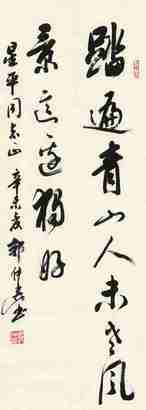 踏遍青山人未老风
景这边独好
星平同志正 辛未夏 郭仲选书